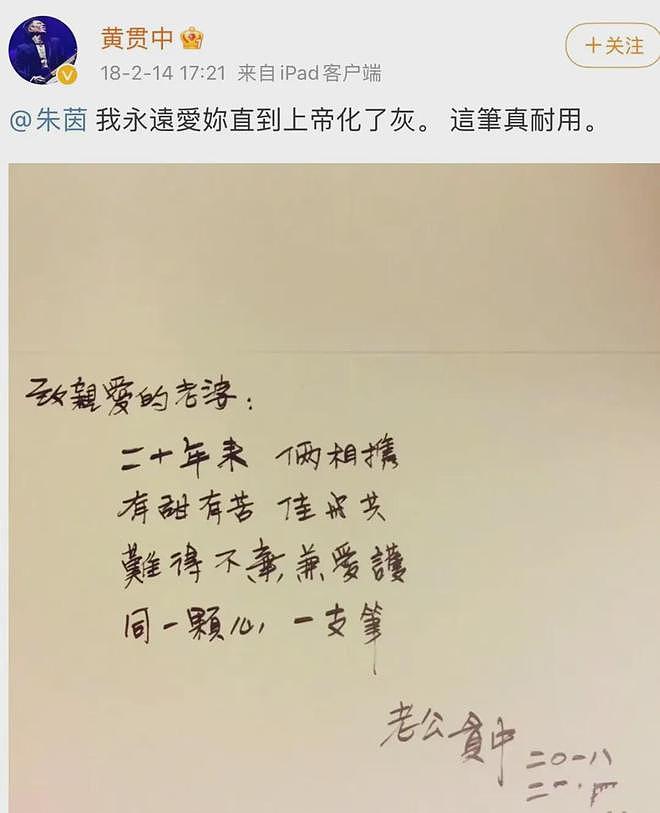 黄贯中
+关注
18-2-14 17:21 来自iPad客户端
@朱茵 我永遠愛妳直到上帝化了灰。 這筆真耐用。
致親愛的老婆：
二十年来 倆相攜
有甜有苦 佳
難得不棄兼愛護
同一顆心 一支筆
老公貫中
二〇一八
二 一.